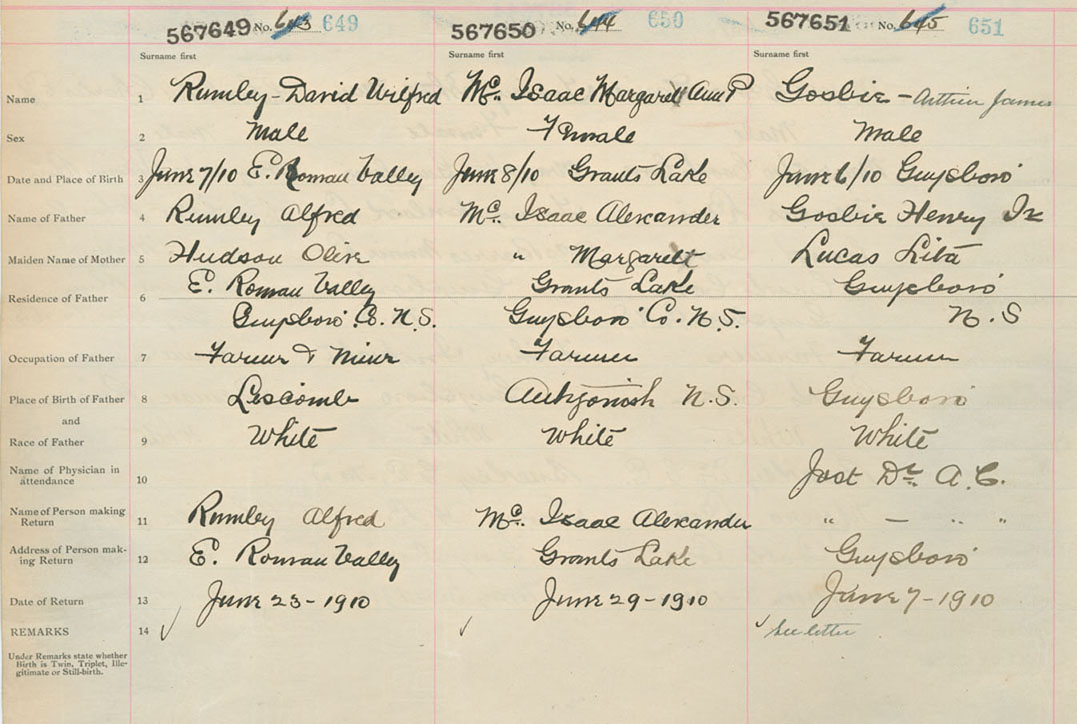 567649 No. 643 649 567650 No. 644 650 567651 No. 645 651
Surname first Surname first Surname first
Name 1 Rumley - David Wilfred Mc. Isaac Margaret Ann P Gosbie - Arthur James
Sex 2 Male Female Male
Date and Place of Birth 3 June 7/10 E. Roman Valley June 8/10 Grants Lake June 6/10 Guysboro
Name of Father 4 Rumley Alfred Mc. Isaac Alexander Gosbie Henry Jr
Maiden Name of Mother 5 Hudson Olive " Margaret Lucas Lita
Residence of Father 6 E. Roman Valley Grants Lake Guysboro
Guysboro Co. N.S. Guysboro Co. N.S. N.S
Occupation of Father 7 Farmer & Miner Farmer Farmer
Place of Birth of Father 8 Liscomb Antigonish N.S. Guysboro
and
Race of Father 9 White White White
Name of Physician in
attendance 10 Jost Dr. A.C.
Name of Person making
Return 11 Rumley Alfred Mc. Isaac Alexander " — " "
Address of Person mak-
ing Return 12 E. Roman Valley Grants Lake Guysboro
Date of Return 13 June 23-1910 June 29-1910 June 7-1910
REMARKS 14 See letter
Under Remarks state whether
Birth is Twin, Triplet, Ille-
gitimate or Still-birth.